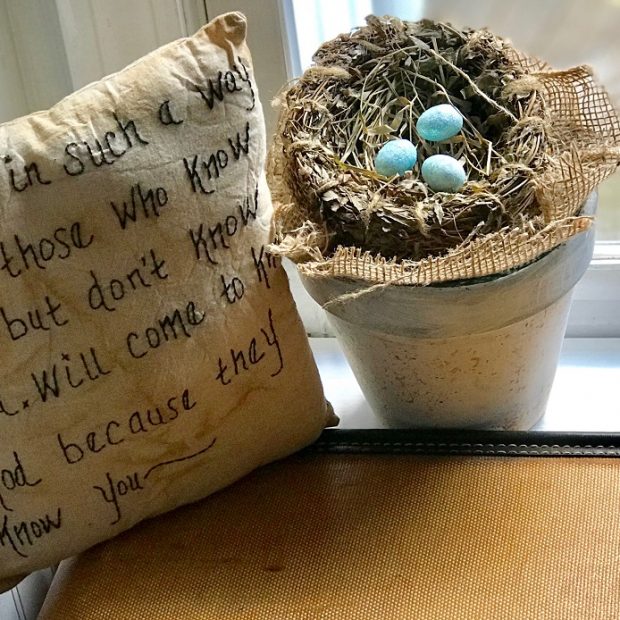 in such a way
those who know
but don't know
will come to
because they
know you